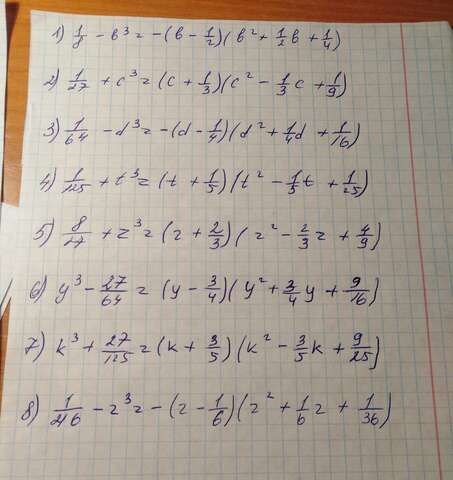 1) 1/8 - b³ = -(b - 1/2)(b² + 1/2 b + 1/4)
2) 1/27 + c³ = (c + 1/3)(c² - 1/3 c + 1/9)
3) 1/64 - d³ = -(d - 1/4)(d² + 1/4 d + 1/16)
4) 1/125 + t³ = (t + 1/5)(t² - 1/5 t + 1/25)
5) 8/27 + z³ = (z + 2/3)(z² - 2/3 z + 4/9)
6) y³ - 27/64 = (y - 3/4)(y² + 3/4 y + 9/16)
7) k³ + 27/125 = (k + 3/5)(k² - 3/5 k + 9/25)
8) 1/216 - z³ = -(z - 1/6)(z² + 1/6 z + 1/36)